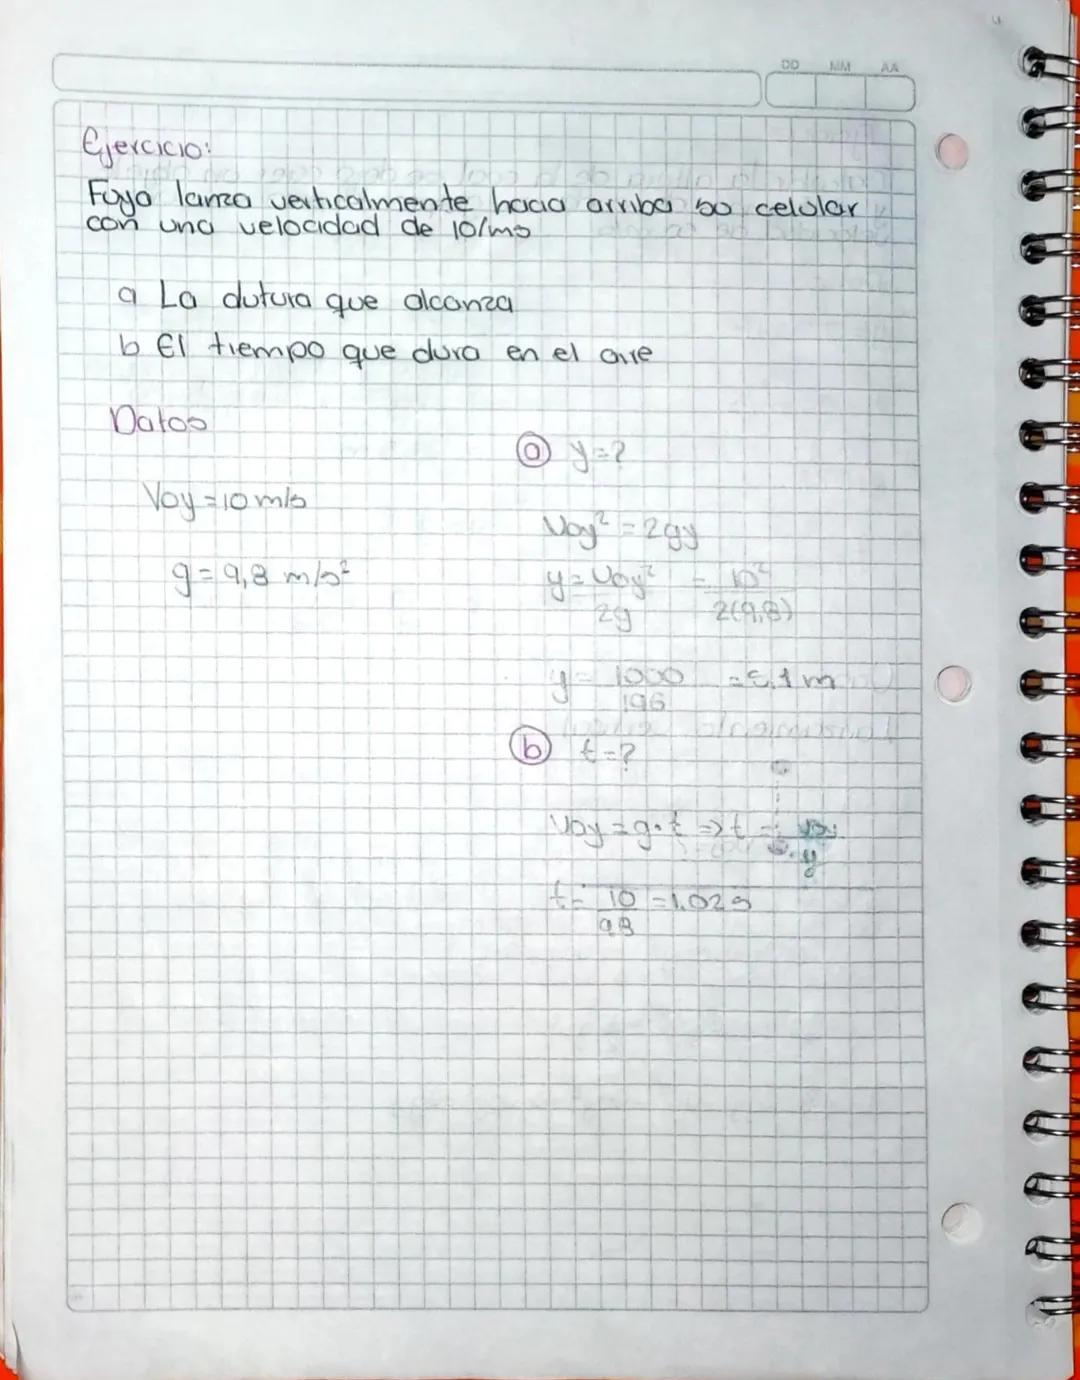 DD MM AA
Ejercicio:
Fuya lanza verticalmente hacia arriba so celular
con una velocidad de 10/ms
a La dutura que alcanza
b El tiempo que dura en el aire
Datos
Voy = 10 m/s
g = 9,8 m/s²
a y=?
Voy² = 2gy
y = Voy²/2g = 10²/2(9,8)
y = 1000/196 = 5,1 m
b t=?
Voy = g·t => t = Voy/y
t = 10/98 = 1.02s